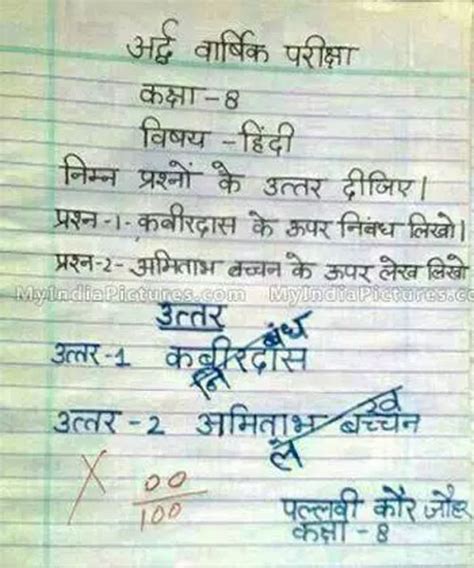 अर्द्ध वार्षिक परीक्षा
कक्षा - 8
विषय - हिंदी
निम्न प्रश्नों के उत्तर दीजिए।
प्रश्न -1- कबीरदास के ऊपर निबंध लिखो।
प्रश्न-2- अमिताभ बच्चन के ऊपर लेख लिखो
MyIndiaPictures.com MyIndiaPictures.co
उत्तर
उत्तर -1 कबीरदास
निबंध
उत्तर - 2 अमिताभ बच्चन
लेख
X 00
100
पल्लवी कौर जौहर
कक्षा - 8